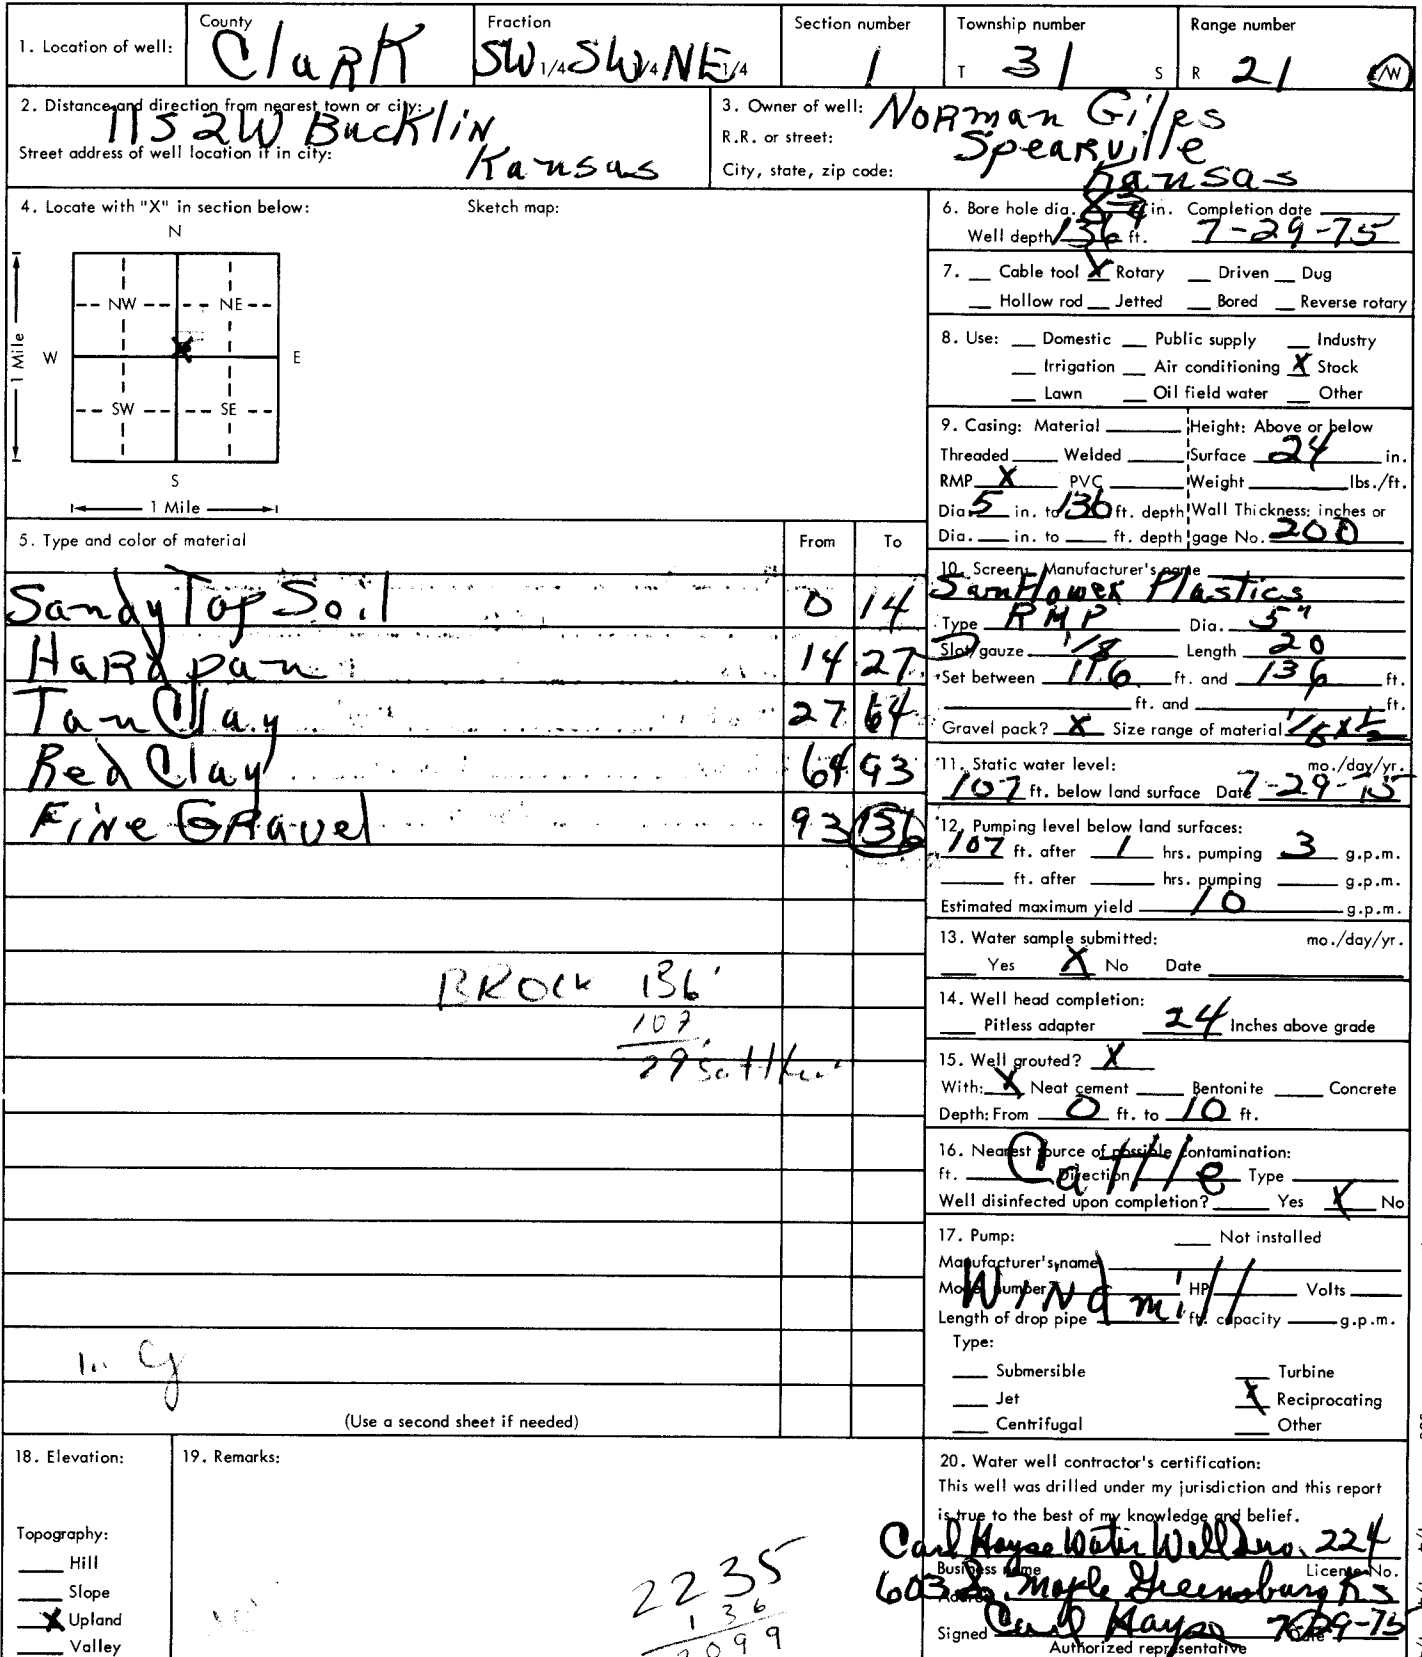 1. Location of well: County Clark Fraction SW 1/4 SW 1/4 NE 1/4 Section number 1 Township number T 31 S Range number R 21 /W
2. Distance and direction from nearest town or city: 11S 2W Bucklin
Street address of well location if in city: Kansas
3. Owner of well: Norman Giles
R.R. or street: Spearville
City, state, zip code: Kansas
4. Locate with "X" in section below: Sketch map:
N
NW NE
W X E
1 Mile
SW SE
S
1 Mile
5. Type and color of material From To
Sandy Top Soil 0 14
Hardpan 14 27
Tan Clay 27 64
Red Clay 64 93
Fine Gravel 93 136
BROCK 136'
107
29
(Use a second sheet if needed)
6. Bore hole dia. in. Completion date
Well depth 136 ft. 7-29-75
7. Cable tool X Rotary Driven Dug
Hollow rod Jetted Bored Reverse rotary
8. Use: Domestic Public supply Industry
Irrigation Air conditioning X Stock
Lawn Oil field water Other
9. Casing: Material Height: Above or below
Threaded Welded Surface 24 in.
RMP X PVC Weight lbs./ft.
Dia. 5 in. to 136 ft. depth Wall Thickness: inches or
Dia. in. to ft. depth gage No. 200
10. Screen: Manufacturer's name
Sunflower Plastics
Type RMP Dia. 5"
Slot/gauze 1/8 Length 20
Set between 116 ft. and 136 ft.
ft. and ft.
Gravel pack? X Size range of material 1/8 x 1/2
11. Static water level: mo./day/yr.
107 ft. below land surface Date 7-29-75
12. Pumping level below land surfaces:
107 ft. after 1 hrs. pumping 3 g.p.m.
ft. after hrs. pumping g.p.m.
Estimated maximum yield 10 g.p.m.
13. Water sample submitted: mo./day/yr.
Yes X No Date
14. Well head completion:
Pitless adapter 24 Inches above grade
15. Well grouted? X
With: X Neat cement Bentonite Concrete
Depth: From 0 ft. to 10 ft.
16. Nearest source of possible contamination:
ft. Cattle Direction Type
Well disinfected upon completion? Yes X No
17. Pump: Not installed
Manufacturer's name
Model number Windmill HP Volts
Length of drop pipe ft. capacity g.p.m.
Type:
Submersible Turbine
Jet X Reciprocating
Centrifugal Other
18. Elevation:
Topography:
Hill
Slope
X Upland
Valley
19. Remarks:
2235
136
2099
20. Water well contractor's certification:
This well was drilled under my jurisdiction and this report
is true to the best of my knowledge and belief.
Carl Hayse Water Well 224
Business name License No.
603 S. Maple Greensburg Ks
Address
Signed Carl Hayse 7-29-75 Date
Authorized representative